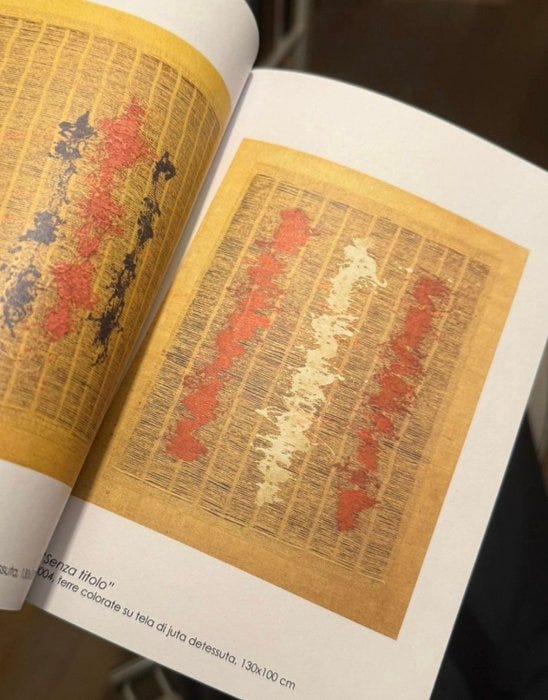 "Senza titolo"
004, terre colorate su tela di juta detessuta, 130x100 cm